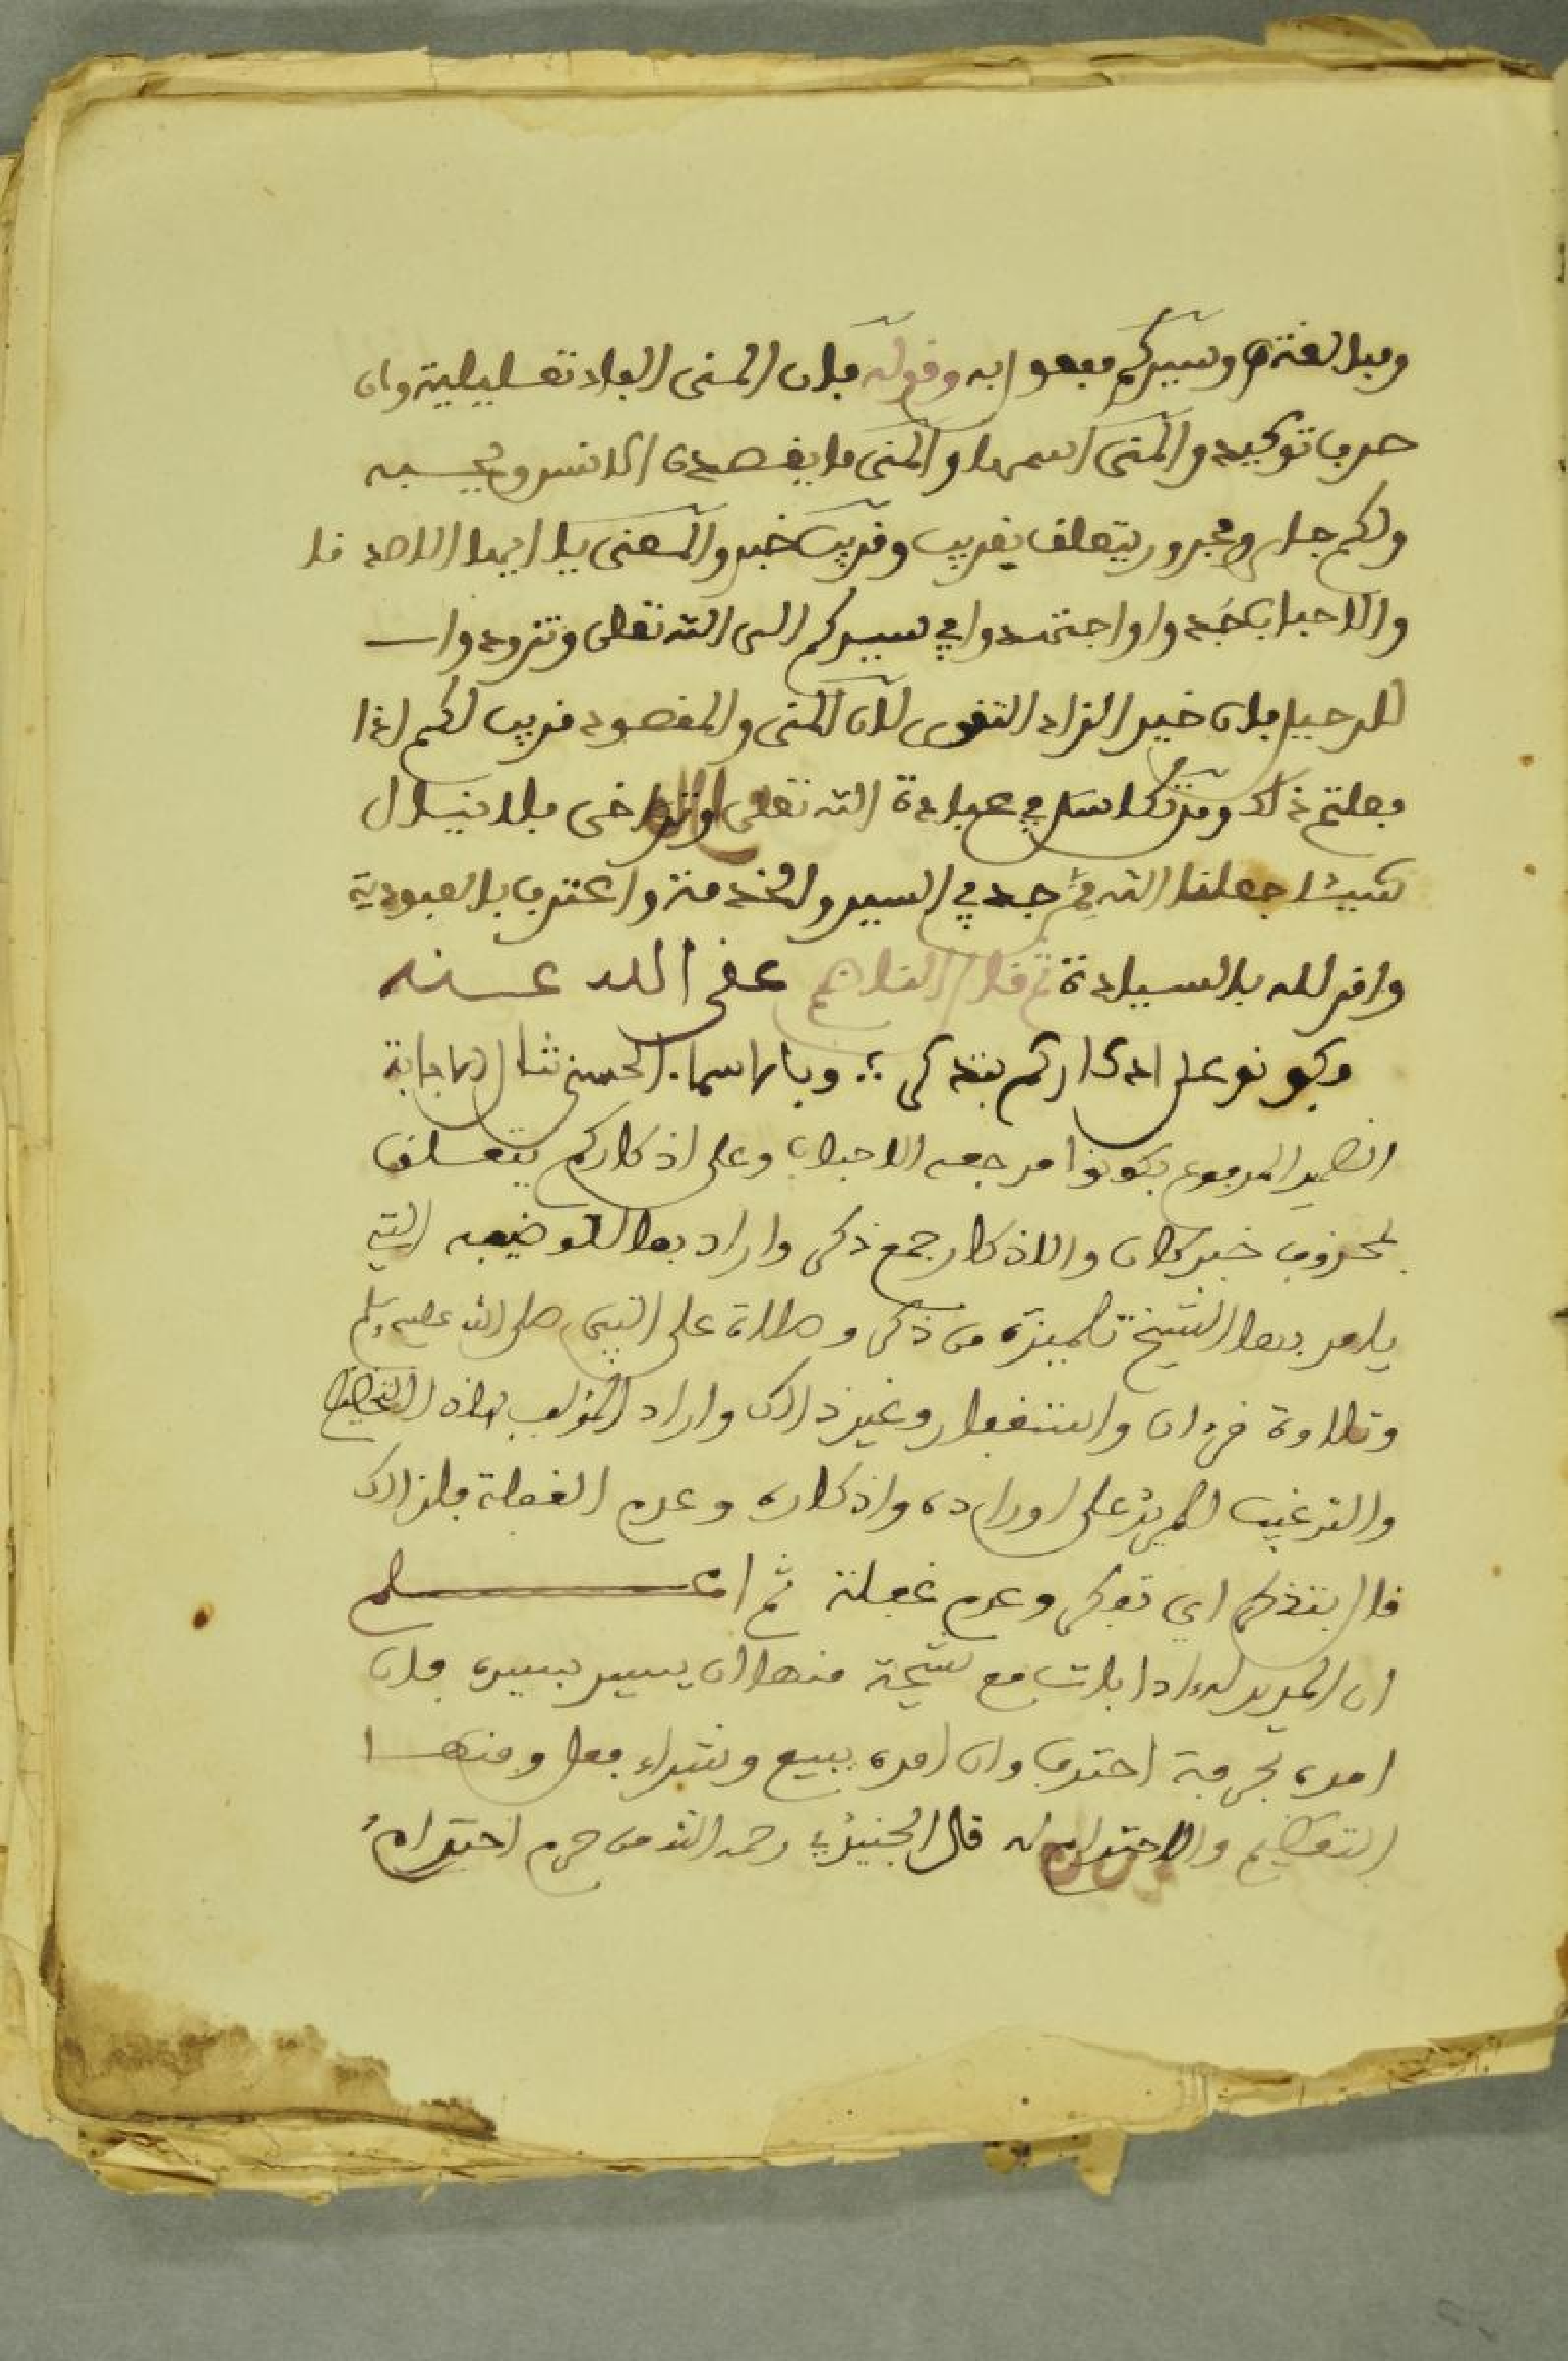 ومبالغته وسيركم مفعولا به وقوله فان المنى الفاء تعليلية وان
حرف توكيد والمنى اسمها والمنى ما يقصده الانسان ويحبه
ولكم جار ومجرور يتعلق بقريب وقريب خبر والمعنى يا ايها الاصدقا
والاحباب جدوا واجتهدوا في سيركم الى الله تعلى وتزودوا
للرحيل فان خير الزاد التقوى لان المنى والمقصود قريب لكم اذا
فعلتم ذلك ومن تكاسل في عبادة الله تعلى وتراخى فلا ينال
شيئا جعلنا الله ممن جد في السير والخدمة واعترف بالعبودية
واقر لله بالسيادة ثم قال الناظم عفى الله عنه
وكونو على اذكاركم بتذكر ؛ وباسماء الحسنى تنال الاجابة
الضمير المرفوع بكونوا مرجعه الاحباب وعلى اذكاركم يتعلق
بمحذوف خبر كان والاذكار جمع ذكر واراد بها الوضيفه التي
يامر بها الشيخ تلميذه من ذكر وصلاة على النبي صلى الله عليه وسلم
وتلاوة قرءان واستغفار وغير ذالك واراد المؤلف بهاذه
والترغيب للمريد على اوراده واذكاره وعدم الغفلة فلذالك
قال بتذكر اي تفكر وعدم غفلة ثم اعلم
ان المريد له اداب مع شيخه منها ان يسير بسيره فان
امره بحرفة احترف وان امره ببيع وشراء فعل ومنها
التعظيم والاحترام له قال الجنيد رحمه الله من حرم احترام